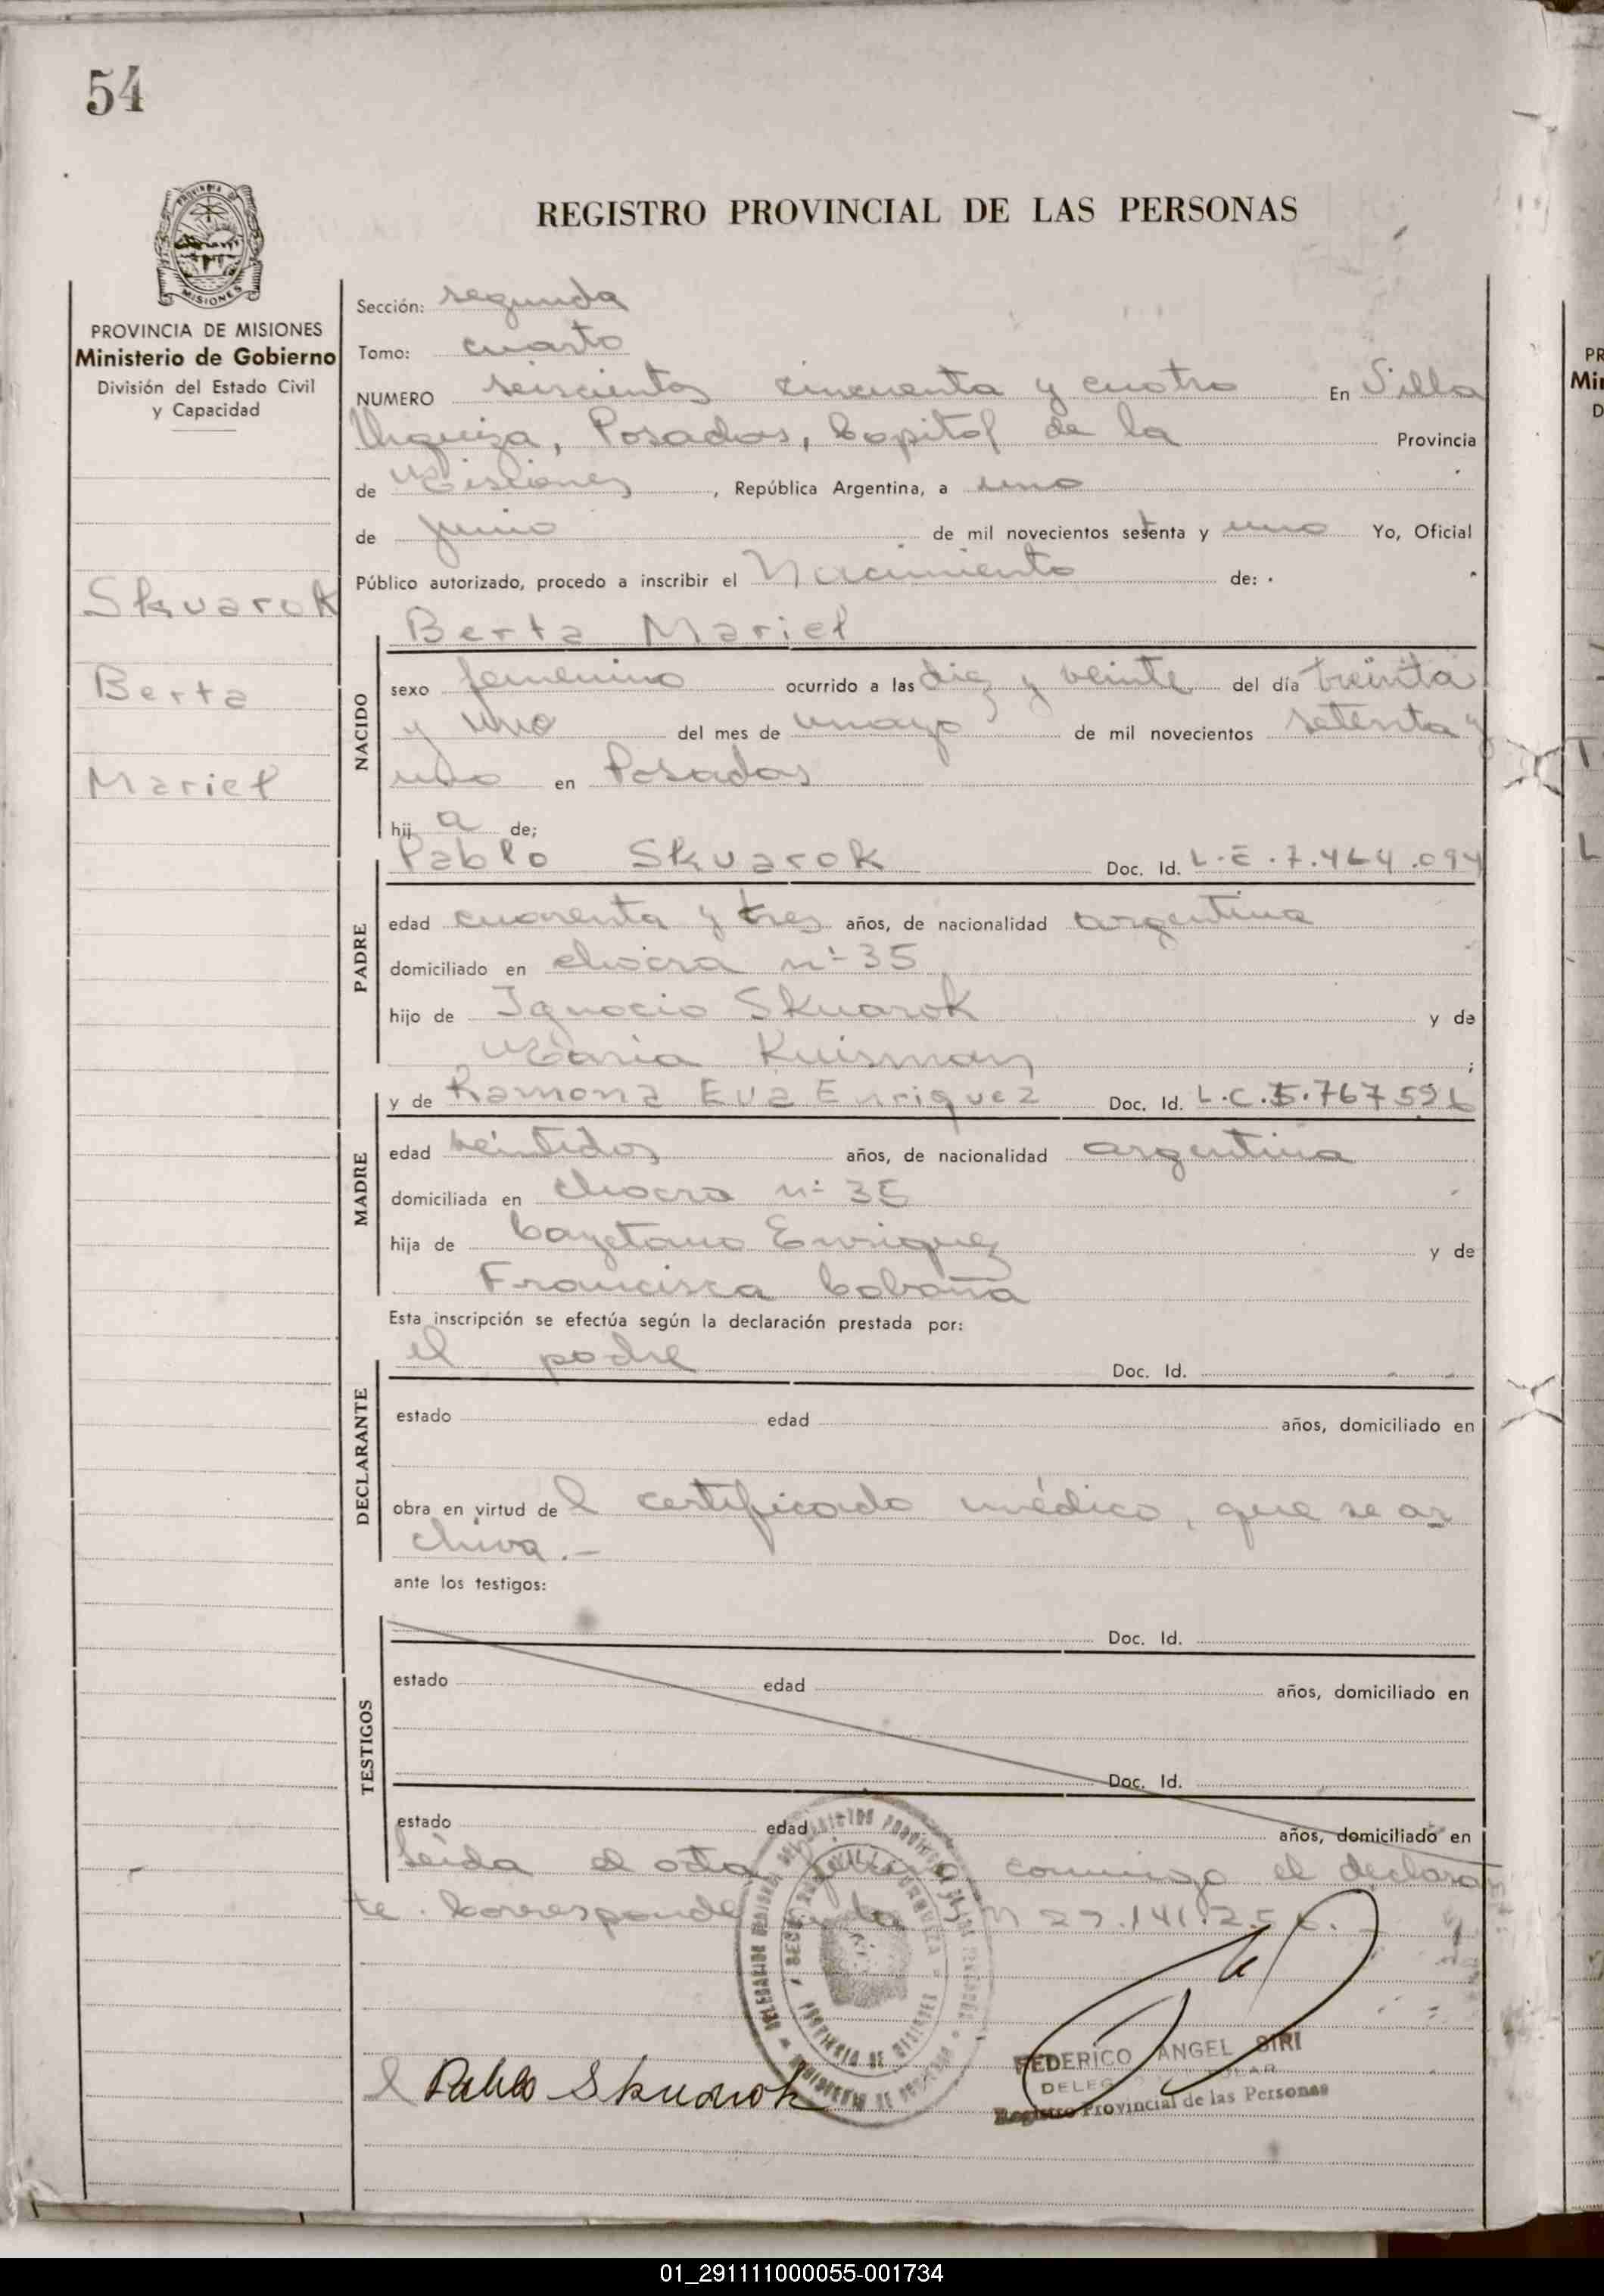 54
REGISTRO PROVINCIAL DE LAS PERSONAS
PROVINCIA DE MISIONES
Ministerio de Gobierno
División del Estado Civil
y Capacidad
Skvarok
Berta
Mariel
Sección: segunda
Tomo: cuarto
NUMERO seiscientos cincuenta y cuatro En Villa
Urquiza, Posadas, Capital de la Provincia
de Misiones, República Argentina, a uno
de junio de mil novecientos setenta y uno Yo, Oficial
Público autorizado, procedo a inscribir el Nacimiento de:
Berta Mariel
NACIDO
sexo femenino ocurrido a las diez y veinte del día treinta
y uno del mes de mayo de mil novecientos setenta y
uno en Posadas
hij a de;
Pablo Skvarok Doc. Id. L.E.7.464.094
PADRE
edad cuarenta y tres años, de nacionalidad argentina
domiciliado en chacra nº 35
hijo de Ignacio Skuarok y de
Maria Kuisman;
y de Ramona Eva Enriquez Doc. Id. L.C.5.767596
MADRE
edad veintidos años, de nacionalidad argentina
domiciliada en chacra nº 35
hija de Cayetano Enriquez y de
Francisca Cabaña
Esta inscripción se efectúa según la declaración prestada por:
el padre Doc. Id.
DECLARANTE
estado edad años, domiciliado en
obra en virtud de l certificado médico, que se ar
chiva.-
ante los testigos:
Doc. Id.
TESTIGOS
estado edad años, domiciliado en
Doc. Id.
estado edad años, domiciliado en
Leida el acta firma conmigo el declaran
te. Corresponde
PROVINCIA DE MISIONES
Pablo Skuarok
FEDERICO ANGEL SIRI
Registro Provincial de las Personas
01_291111000055-001734